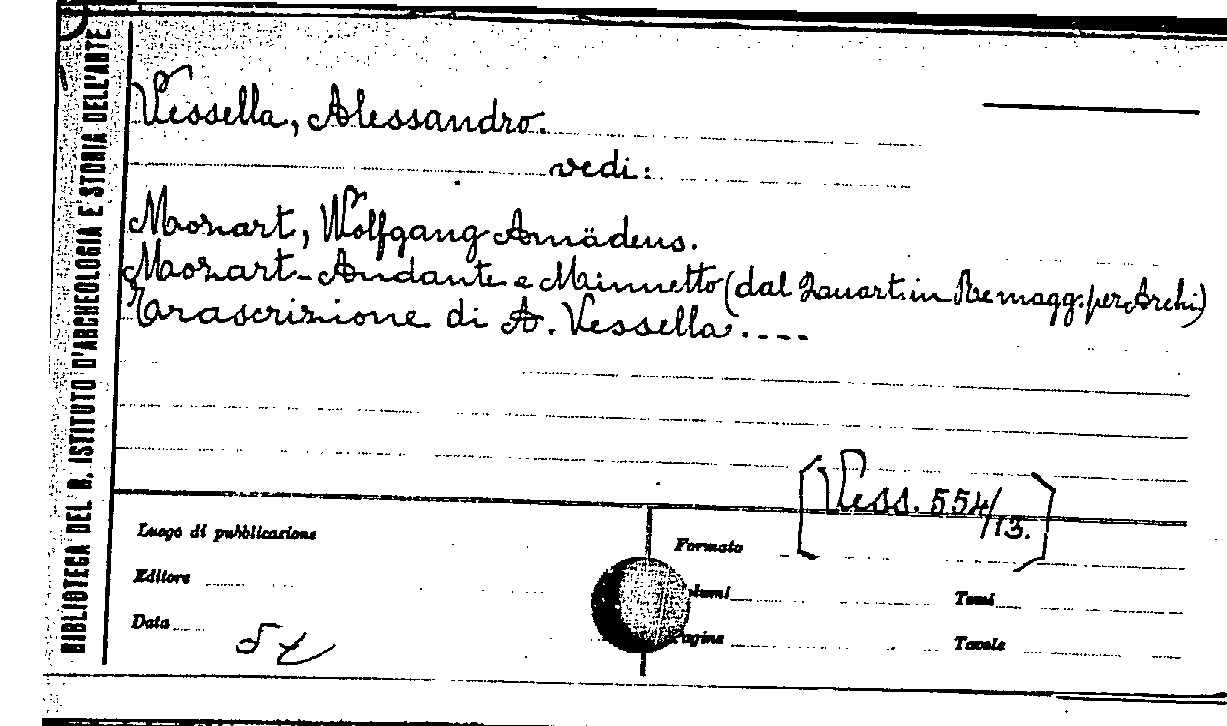 BIBLIOTECA DEL R. ISTITUTO D'ARCHEOLOGIA E STORIA DELL'ARTE
Vessella, Alessandro.
vedi:
Mozart, Wolfgang Amädeus.
Mozart - Andante e Minuetto (dal Quart. in Re magg. per Archi)
Trascrizione di A. Vessella....
[Vess. 554/13.]
Luogo di pubblicazione
Formato
Editore
lumi
Tomi
Data
agine
Tavole